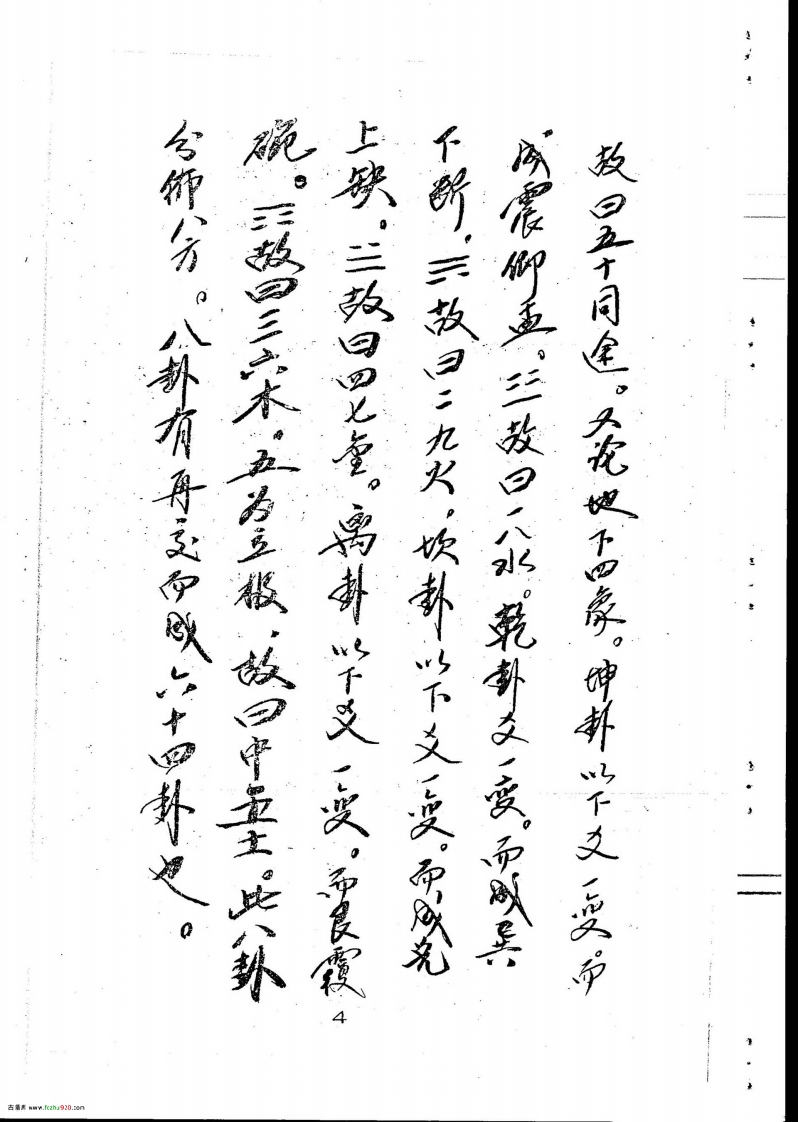 故曰五十同途。又论地下四象。坤卦以下爻一变。而
成震仰盂。☳故曰一八水。乾卦爻一变。而成巽
下断。☴故曰二九火。坎卦以下爻一变。而成兑
上缺。☱故曰四七金。离卦以下爻一变。而艮覆
碗。☶故曰三六木。五为立极，故曰中五土。此八卦
分佈八方。八卦有再交而成六十四卦也。
4
www.fczhu920.com